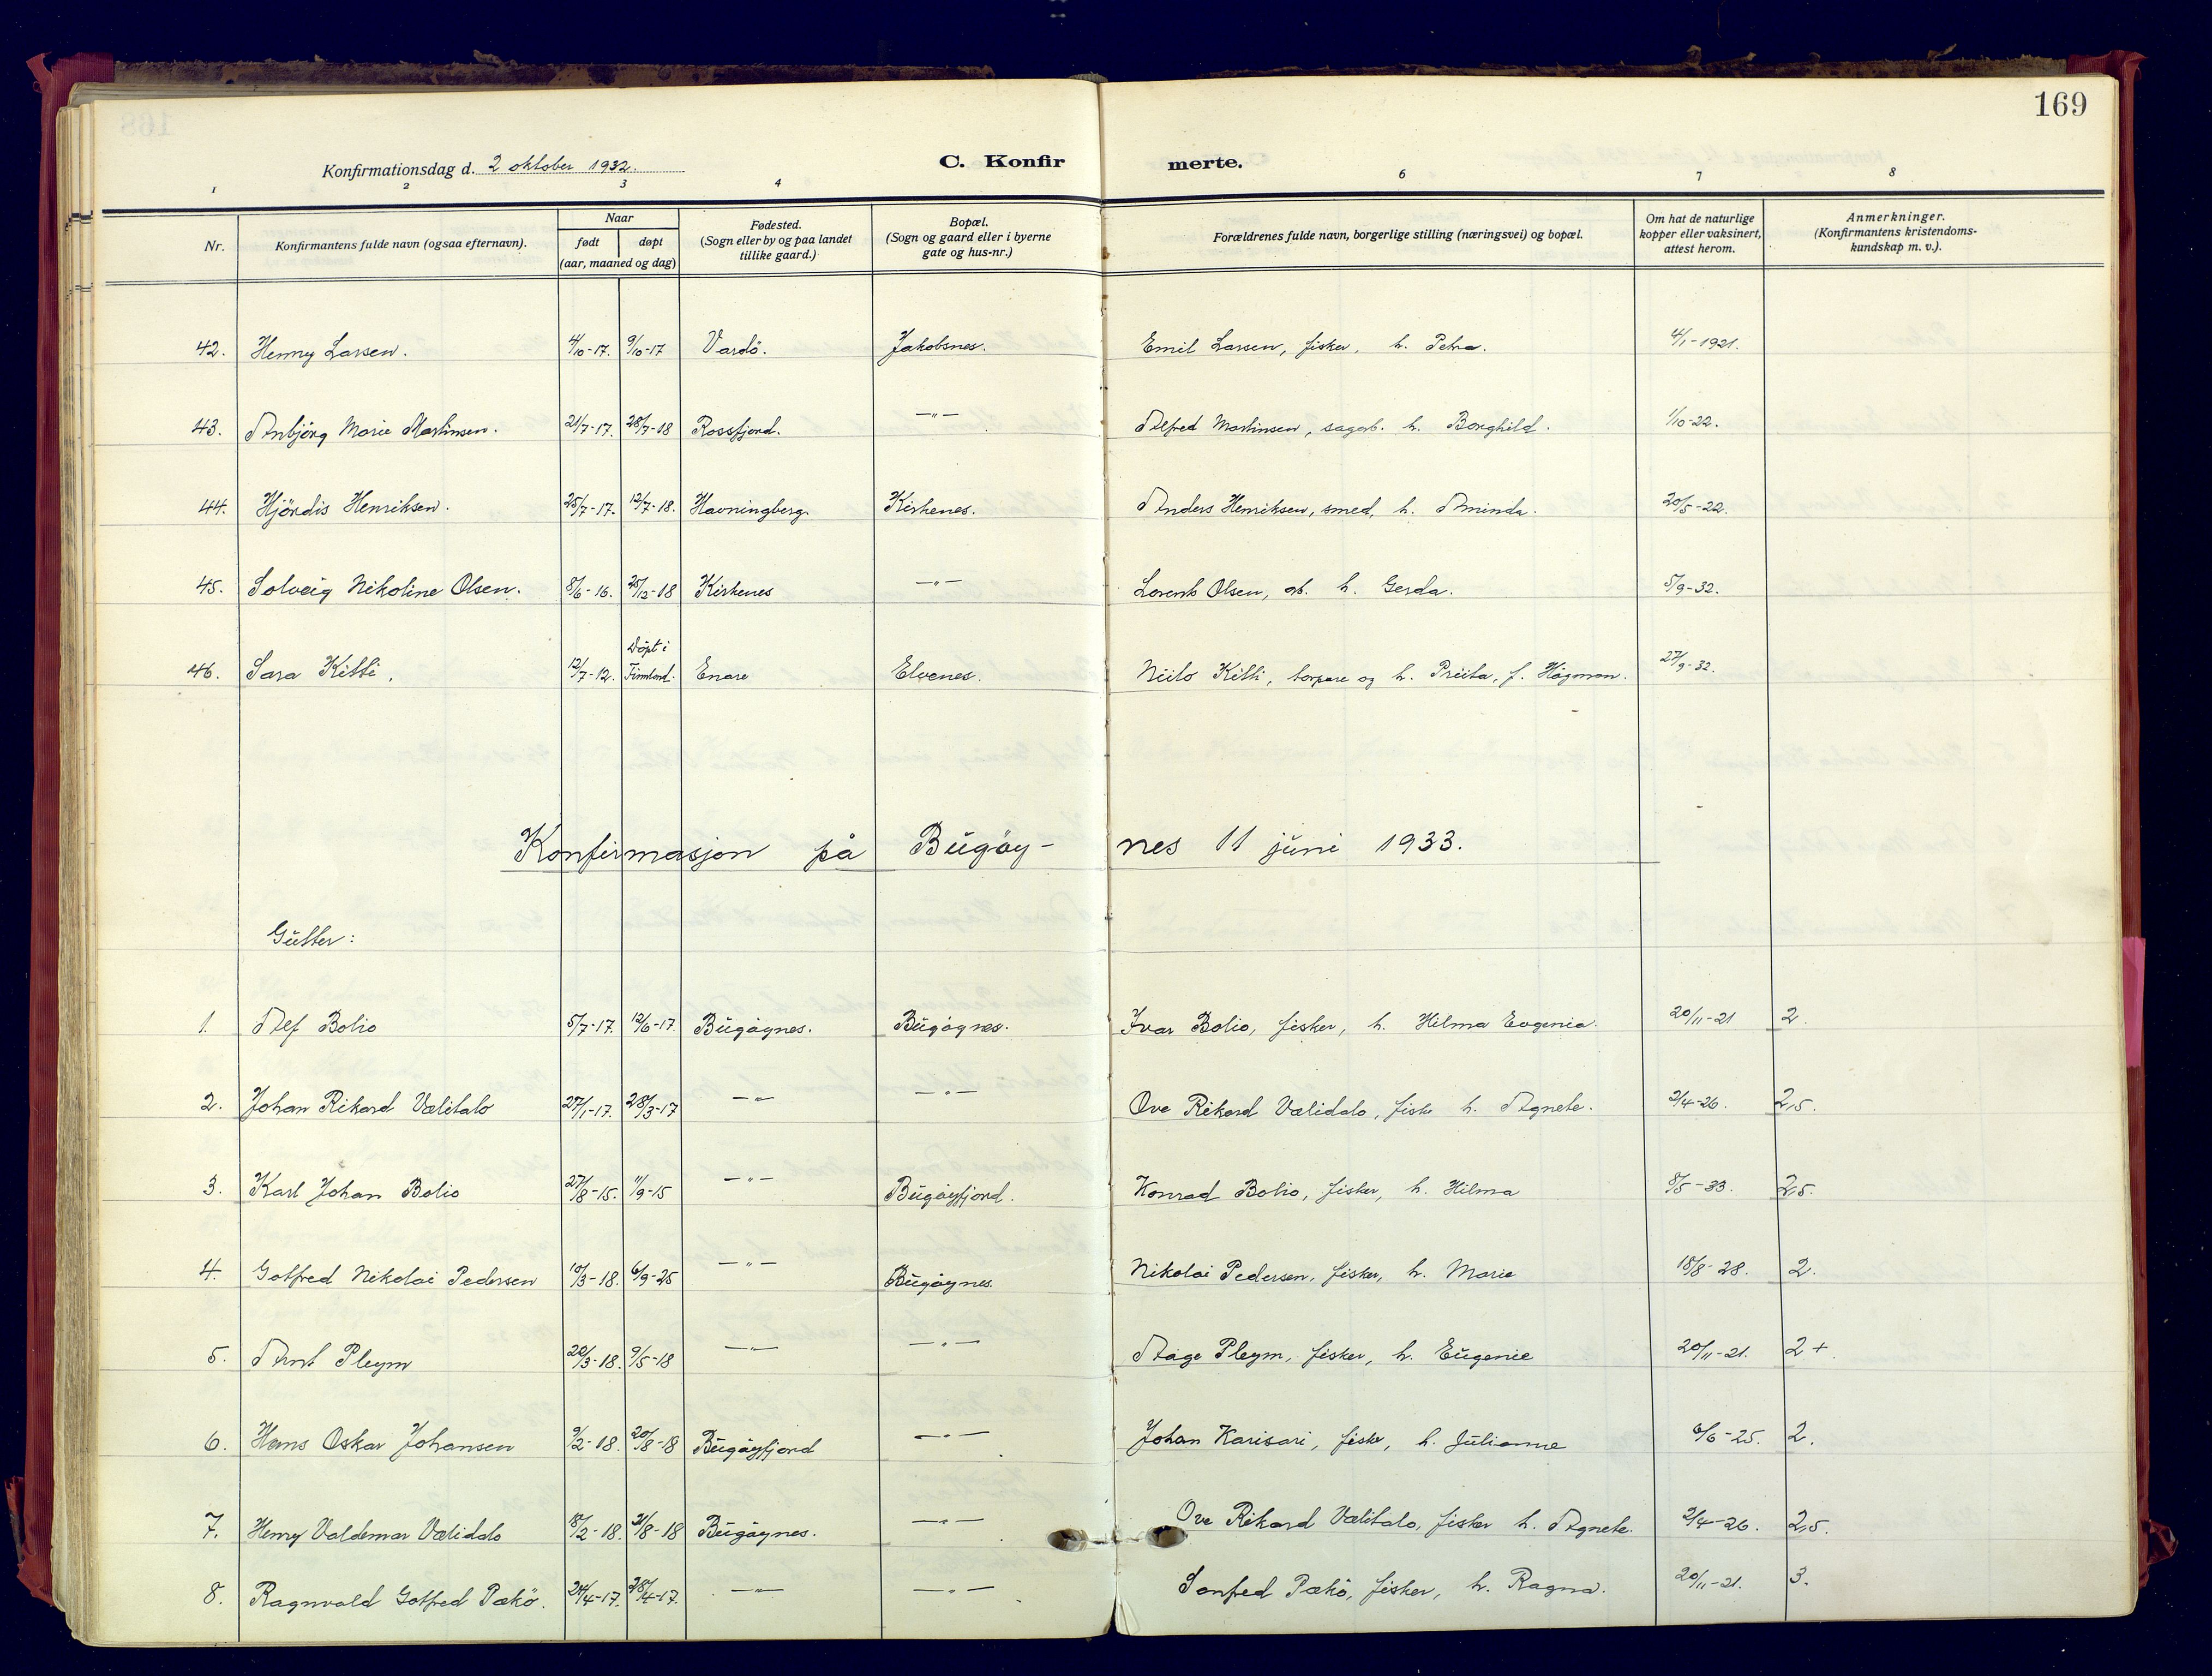 169
Konfirmationsdag d. 2 oktober 1932. C. Konfirmerte.
1 2 3 4 6 7 8
Nr. Konfirmantens fulde navn (ogsaa efternavn). Naar født døpt (aar, maaned og dag) Fødested. (Sogn eller by og paa landet tillike gaard.) Bopæl. (Sogn og gaard eller i byerne gate og hus-nr.) Forældrenes fulde navn, borgerlige stilling (næringsvei) og bopæl. Om hat de naturlige kopper eller vaksinert, attest herom. Anmerkninger. (Konfirmantens kristendoms-kundskap m. v.).
42. Henny Larsen. 4/10-17. 9/10-17 Vardö. Jakobsnes. Emil Larsen, fisker, h. Petra. 4/1-1921.
43. Anbjörg Marie Martinsen. 21/7-17. 28/7-18 Rossfjord. —"— Alfred Martinsen, sagarb. h. Borghild. 1/10-22.
44. Hjördis Henriksen. 25/7-17. 12/7-18. Havningberg. Kirkenes. Anders Henriksen, smed, h. Aminda. 20/5-22.
45. Solveig Nikoline Olsen. 8/6-16. 25/12-18 Kirkenes —"— Lorents Olsen, arb. h. Gerda. 5/9-32.
46. Sara Kitti. 12/7-12. Döpt i Finnland. Enare Elvenes. Niilo Kitti, torpare og h. Priita, f. Högman. 27/9-32.
Konfirmasjon på Bugöynes 11 juni 1933.
Gutter:
1. Alf Bolio 5/7-17. 12/6-17. Bugöynes. Bugöynes. Ivar Bolio, fisker, h. Hilma Evgenia. 20/11-21 2.
2. Johan Rikard Vælitalo 27/1-17. 28/3-17 —"— —"— Ove Rikard Vælidalo, fisk h. Agnete. 2/4-26. 2,5.
3. Karl Johan Bolio 27/8-15. 11/9-15 —"— Bugöyfjord. Konrad Bolio, fisker, h. Hilma 8/5-33. 2,5.
4. Gotfred Nikolai Pedersen 10/3-18. 6/9-25 —"— Bugöynes. Nikolai Pedersen, fisker, h. Marie 18/8-28. 2.
5. Arnt Pleym 20/3-18. 9/5-18 —"— —"— Aage Pleym, fisker, h. Eugenie 20/11-21. 2+.
6. Hans Oskar Johansen 9/2-18. 20/8-18 Bugöyfjord —"— Johan Karisari, fisker, h. Julianne 6/6-25. 2.
7. Henry Valdemar Vælidalo 18/2-18. 21/8-18 Bugöynes. —"— Ove Rikard Vælitalo, fisker h. Agnete. 2/4-26. 2,5.
8. Ragnvald Gotfred Pækö. 24/4-17. 28/4-17. —"— —"— Sanfred Pækö, fisker, h. Ragna. 20/11-21. 3.